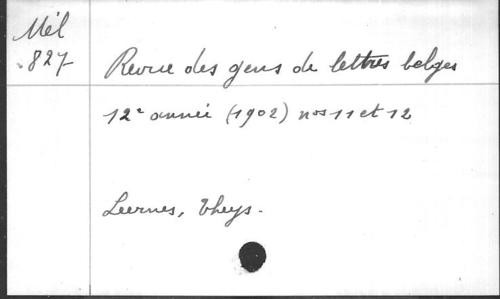 Mél
.827
Revue des gens de lettres belges
12e année (1902) nos 11 et 12
Leernes, Theys.